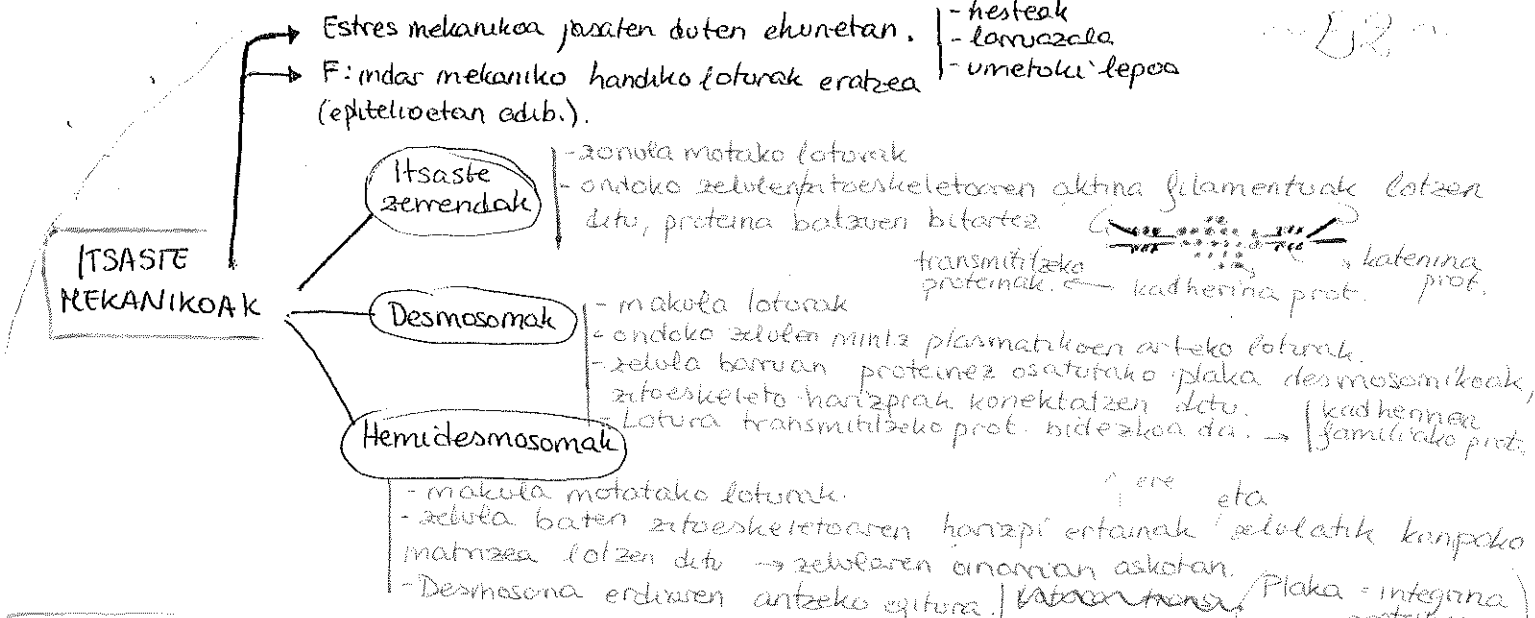 → Estres mekanikoa jasaten duten ehunetan.
- hesteak
- larruazala
- umetoki lepoa
→ F: indar mekaniko handiko loturak eratzea
(epitelioetan adib.).
ITSASTE
MEKANIKOAK
Itsaste
zerrendak
- zonula motako loturak
- ondoko zelulen zitoeskeletoaren aktina filamentuak lotzen
ditu, proteina batzuen bitartez.
katenina
prot.
kadherina prot.
proteinak.
Desmosomak
- makula loturak
- ondoko zelulen mintz plasmatikoen arteko loturak.
- zelula barruan proteinez osatutako plaka desmosomikoak,
zitoeskeleto harizpiak konektatzen ditu.
- Lotura prot. bidezkoa da. →
familiako prot.
Hemidesmosomak
- makula motatako loturak.
- zelula baten zitoeskeletoaren harizpi ertainak ere eta zelulatik kanpoko
matrizea lotzen ditu → zelularen oinarrian askotan.
- Desmosoma erdiaren antzeko egitura.
Plaka = integrina